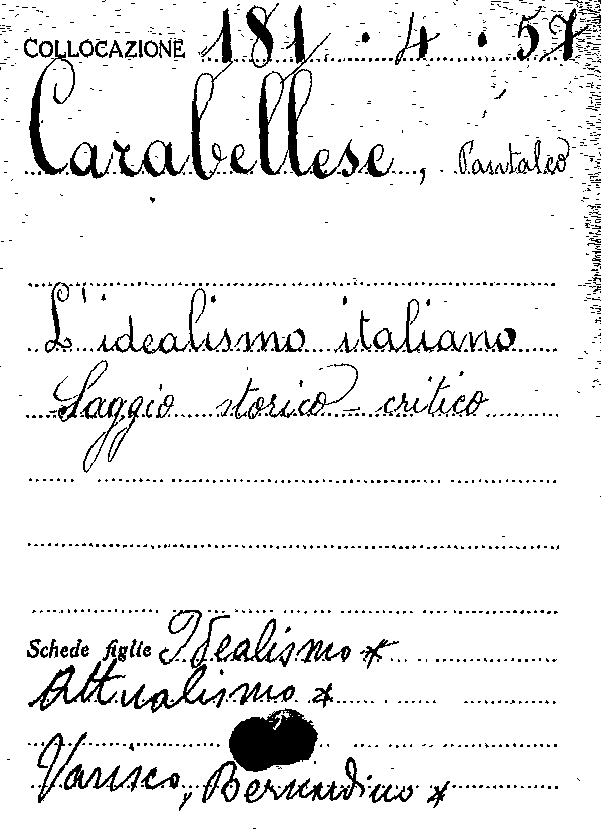 COLLOCAZIONE 181.4.57
Carabellese, Pantaleo
L'idealismo italiano
Saggio storico-critico
Schede figlie Idealismo *
Attualismo *
Varisco, Bernardino *